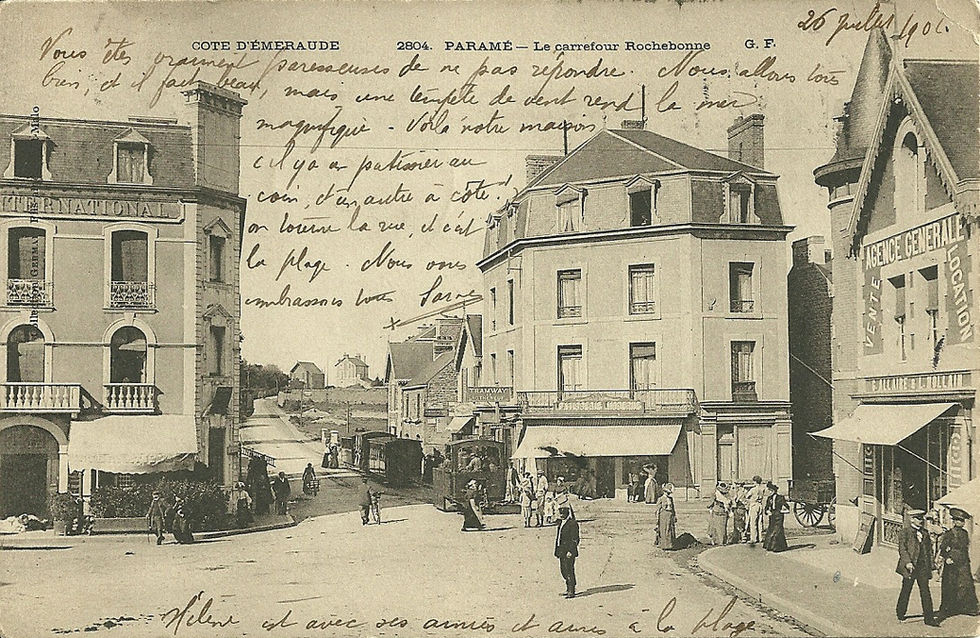 26 juillet 1906.
COTE D'ÉMERAUDE 2804. PARAMÉ — Le carrefour Rochebonne G. F.
Vous êtes vraiment paresseuses de ne pas répondre. Nous allons tous
bien, et il fait beau, mais une tempête de vent rend la mer
magnifique - Voilà notre maison
il y a un patissier au
coin, d'un autre à côté
on tourne la rue, et c'est
la plage. Nous vous
embrassons tous
INTERNATIONAL
Germain, fils, St-Malo
AGENCE GENERALE
VENTE
LOCATION
Hélène est avec ses amies et amis à la plage